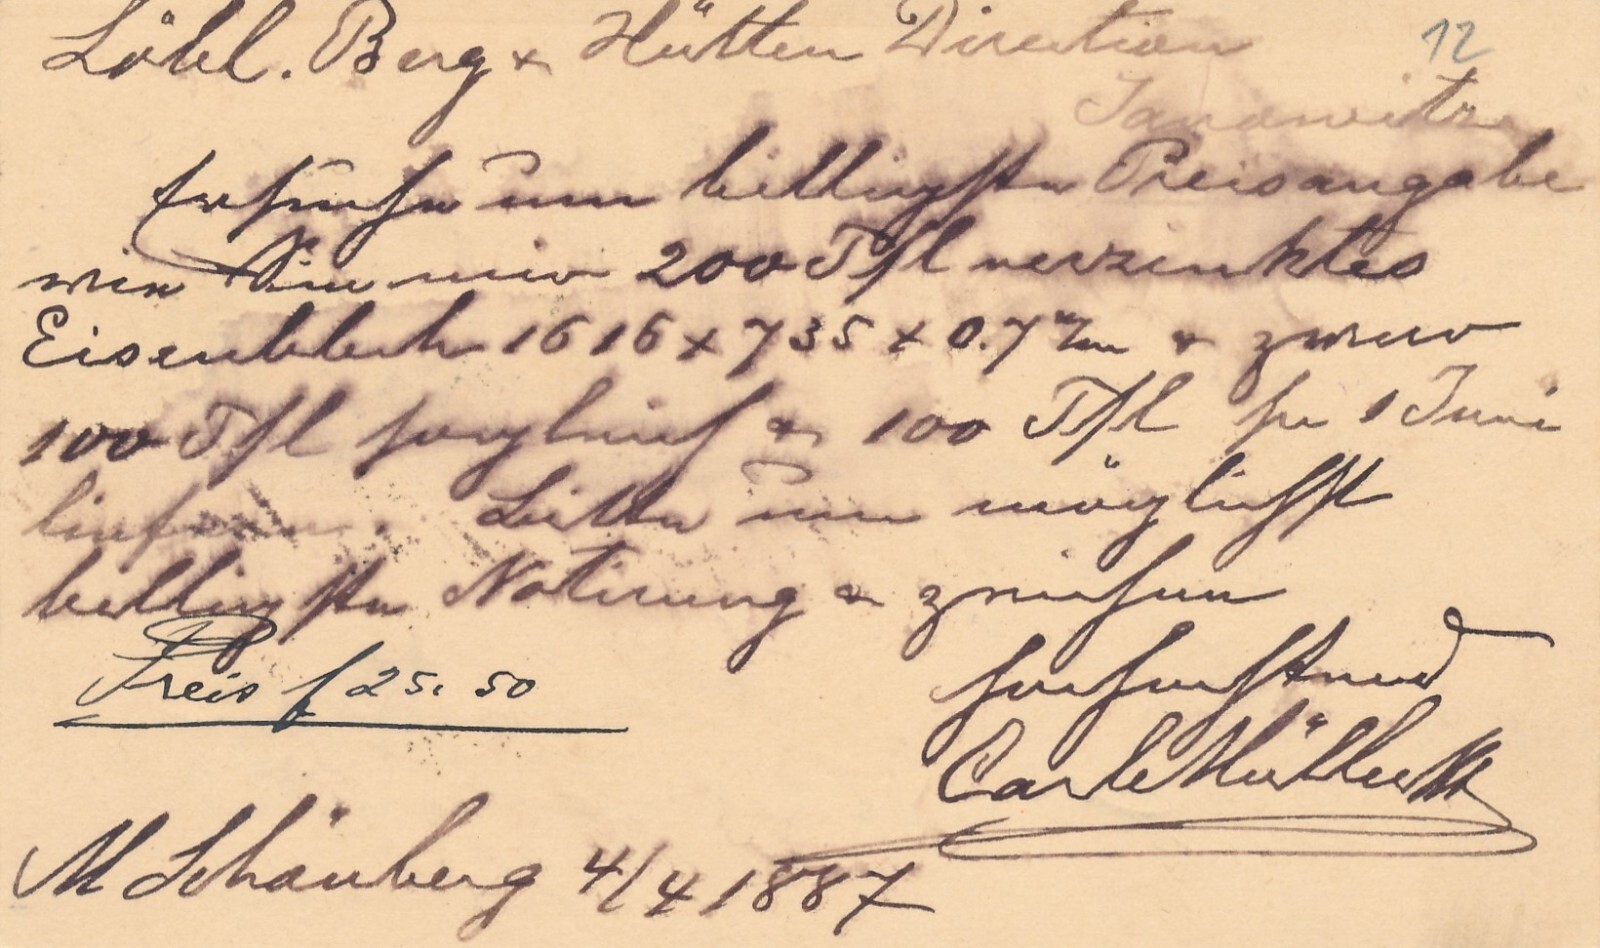 Löbl. Berg & Hütten Direction
12
Janowitz
Ersuche um billigste Preisangabe
wie Sie mir 200 Tfl verzinktes
Eisenblech 1616 x 735 x 0.7 m/m & zwar
100 Tfl sogleich & 100 Tfl pr 1 Juni
liefern. Bitte um möglichst
billigste Notirung & zeichne
Preis f 25. 50
hochachtend
Carl Müller
M Schönberg 4/4 1887